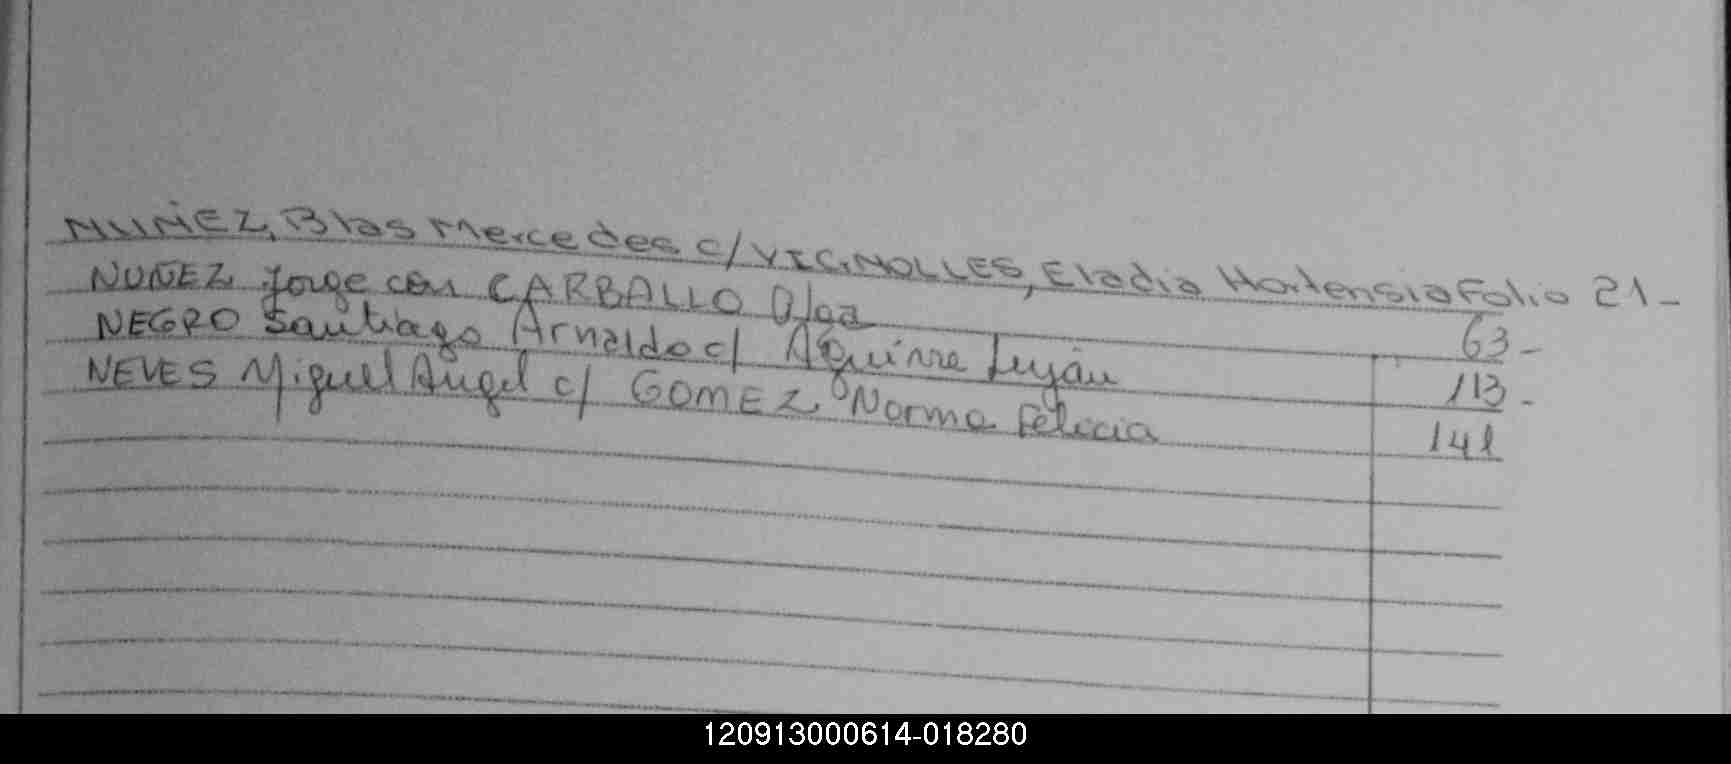 NUÑEZ, Blas Mercedes c/ VIGNOLLES, Eladia Hortensia Folio 21-
NUÑEZ Jorge con CARBALLO Olga 63-
NEGRO Santiago Arnaldo c/ Aguirre Luján 113-
NEVES Miguel Angel c/ GOMEZ Norma Felicia 141
120913000614-018280